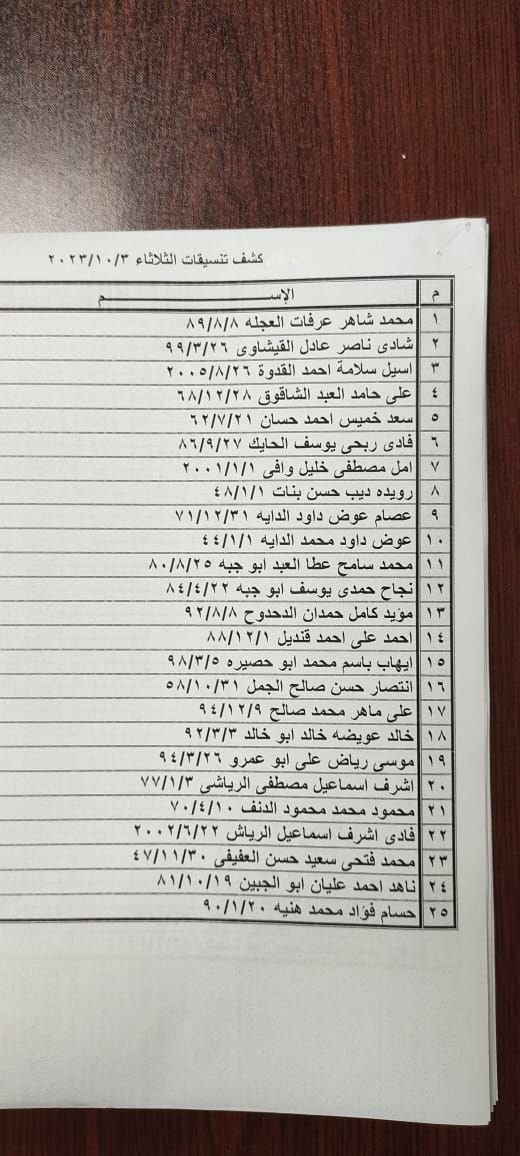 كشف تنسيقات الثلاثاء ٢٠٢٣/١٠/٣
م الإســـــــــــــم
١ محمد شاهر عرفات العجله ٨٩/٨/٨
٢ شادى ناصر عادل القيشاوى ٩٩/٣/٢٦
٣ اسيل سلامة احمد القدوة ٢٠٠٥/٨/٢٦
٤ على حامد العبد الشاقوق ٦٨/١٢/٢٨
٥ سعد خميس احمد حسان ٦٢/٧/٢١
٦ فادى ربحى يوسف الحايك ٨٦/٩/٢٧
٧ امل مصطفى خليل وافى ٢٠٠١/١/١
٨ رويده ديب حسن بنات ٤٨/١/١
٩ عصام عوض داود الدايه ٧١/١٢/٣١
١٠ عوض داود محمد الدايه ٤٤/١/١
١١ محمد سامح عطا العبد ابو جبه ٨٠/٨/٢٥
١٢ نجاح حمدى يوسف ابو جبه ٨٤/٤/٢٢
١٣ مؤيد كامل حمدان الدحدوح ٩٢/٨/٨
١٤ احمد على احمد قنديل ٨٨/١٢/١
١٥ ايهاب باسم محمد ابو حصيره ٩٨/٣/٥
١٦ انتصار حسن صالح الجمل ٥٨/١٠/٣١
١٧ على ماهر محمد صالح ٩٤/١٢/٩
١٨ خالد عويضه خالد ابو خالد ٩٢/٣/٣
١٩ موسى رياض على ابو عمرو ٩٤/٣/٢٦
٢٠ اشرف اسماعيل مصطفى الرياشى ٧٧/١/٣
٢١ محمود محمد محمود الدنف ٧٠/٤/١٠
٢٢ فادى اشرف اسماعيل الرياش ٢٠٠٢/٦/٢٢
٢٣ محمد فتحى سعيد حسن العفيفى ٤٧/١١/٣٠
٢٤ ناهد احمد عليان ابو الجبين ٨١/١٠/١٩
٢٥ حسام فؤاد محمد هنيه ٩٠/١/٢٠